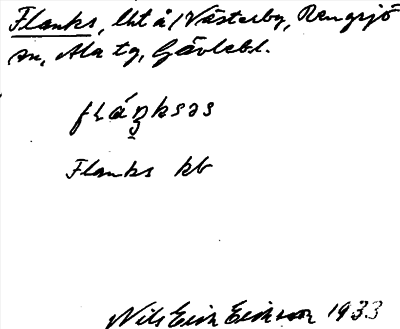 Flanks, lht å / Västerby, Rengsjö
sn, Ala tg, Gävlebl.
fláŋksəs
Flanks kb
Nils Erik Eriksson 1933